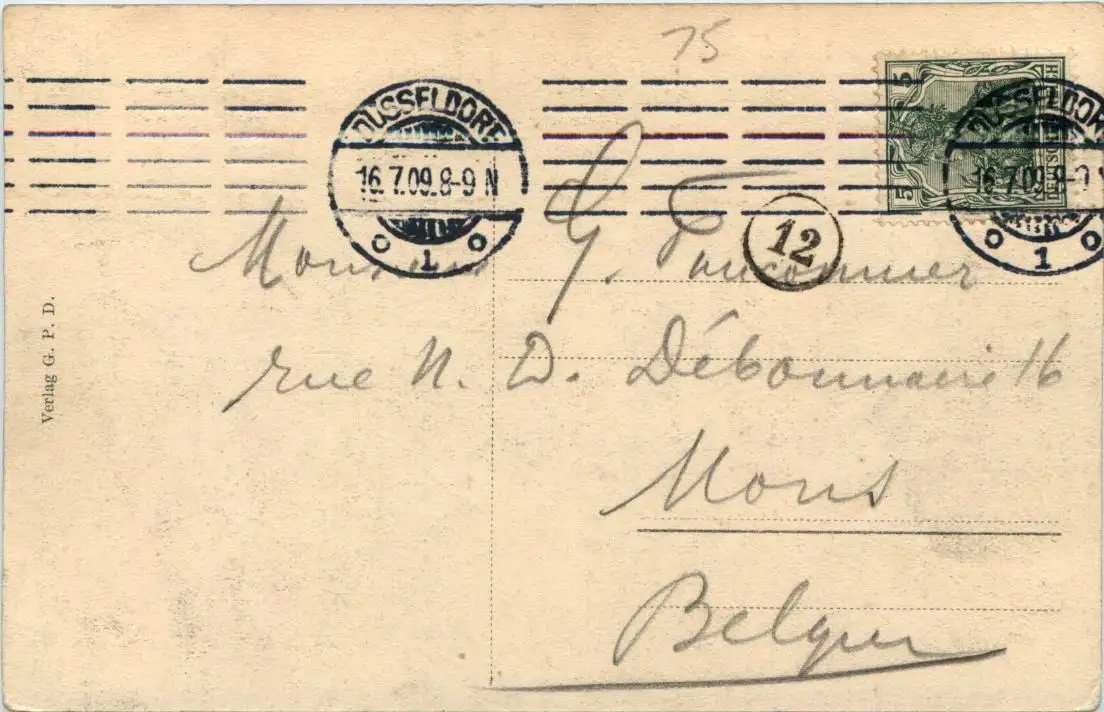 75
DÜSSELDORF
16.7.09.8-9 N
o 1 o
5 5
DÜSSELDORF
16.7.09.8-9 N
o 1 o
12
Monsieur G. Fauconnier
rue N. D. Débonnaire 16
Mons
Belgique
Verlag G. P. D.